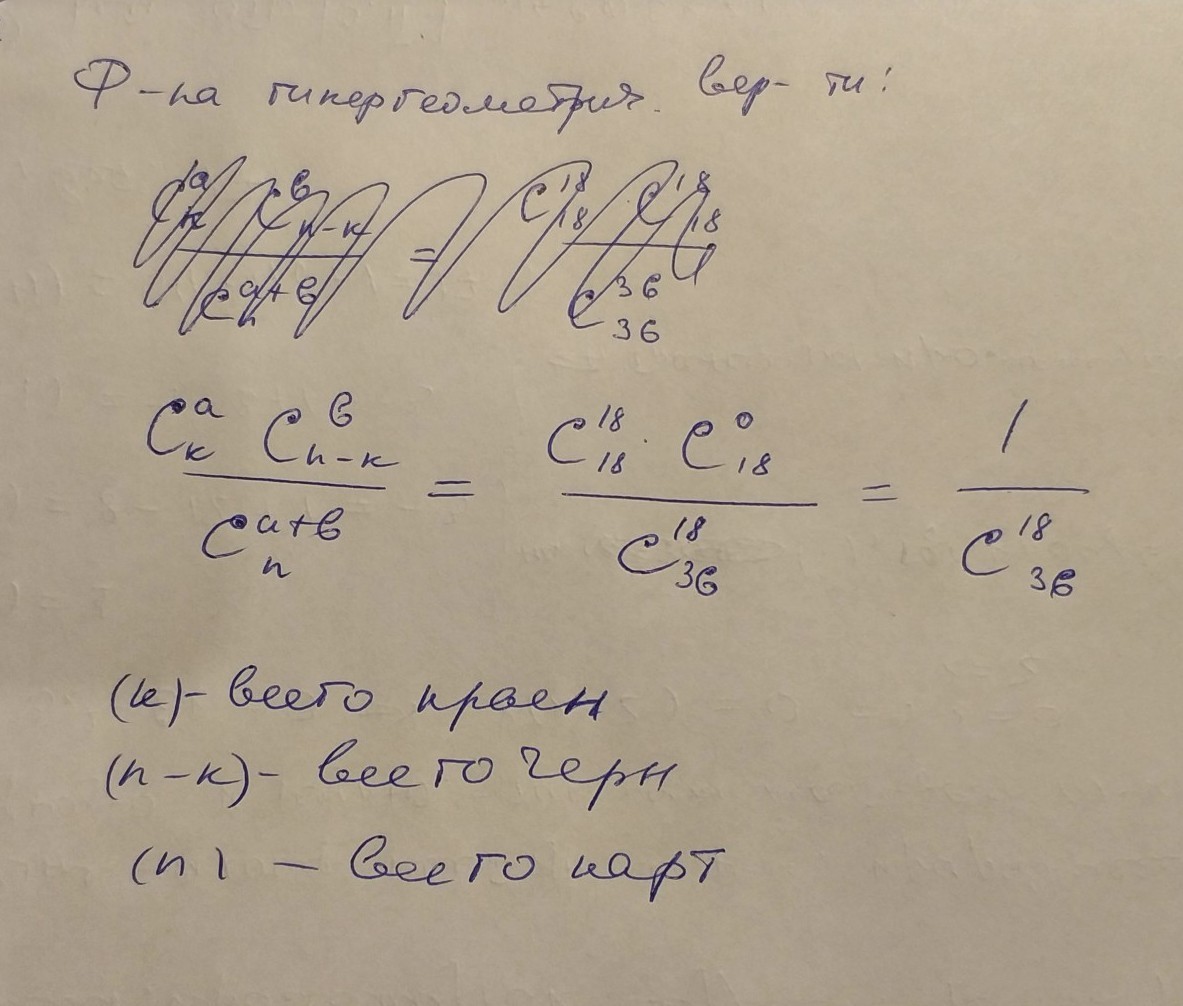 Ф-ла гипергеометрич. вер-ти:
C_k^a C_{n-k}^b / C_n^{a+b} = C_18^18 C_18^18 / C_36^36
C_k^a C_{n-k}^b / C_n^{a+b} = C_18^18 · C_18^0 / C_36^18 = 1 / C_36^18
(k) - всего красн
(n-k) - всего черн
(n) - всего карт